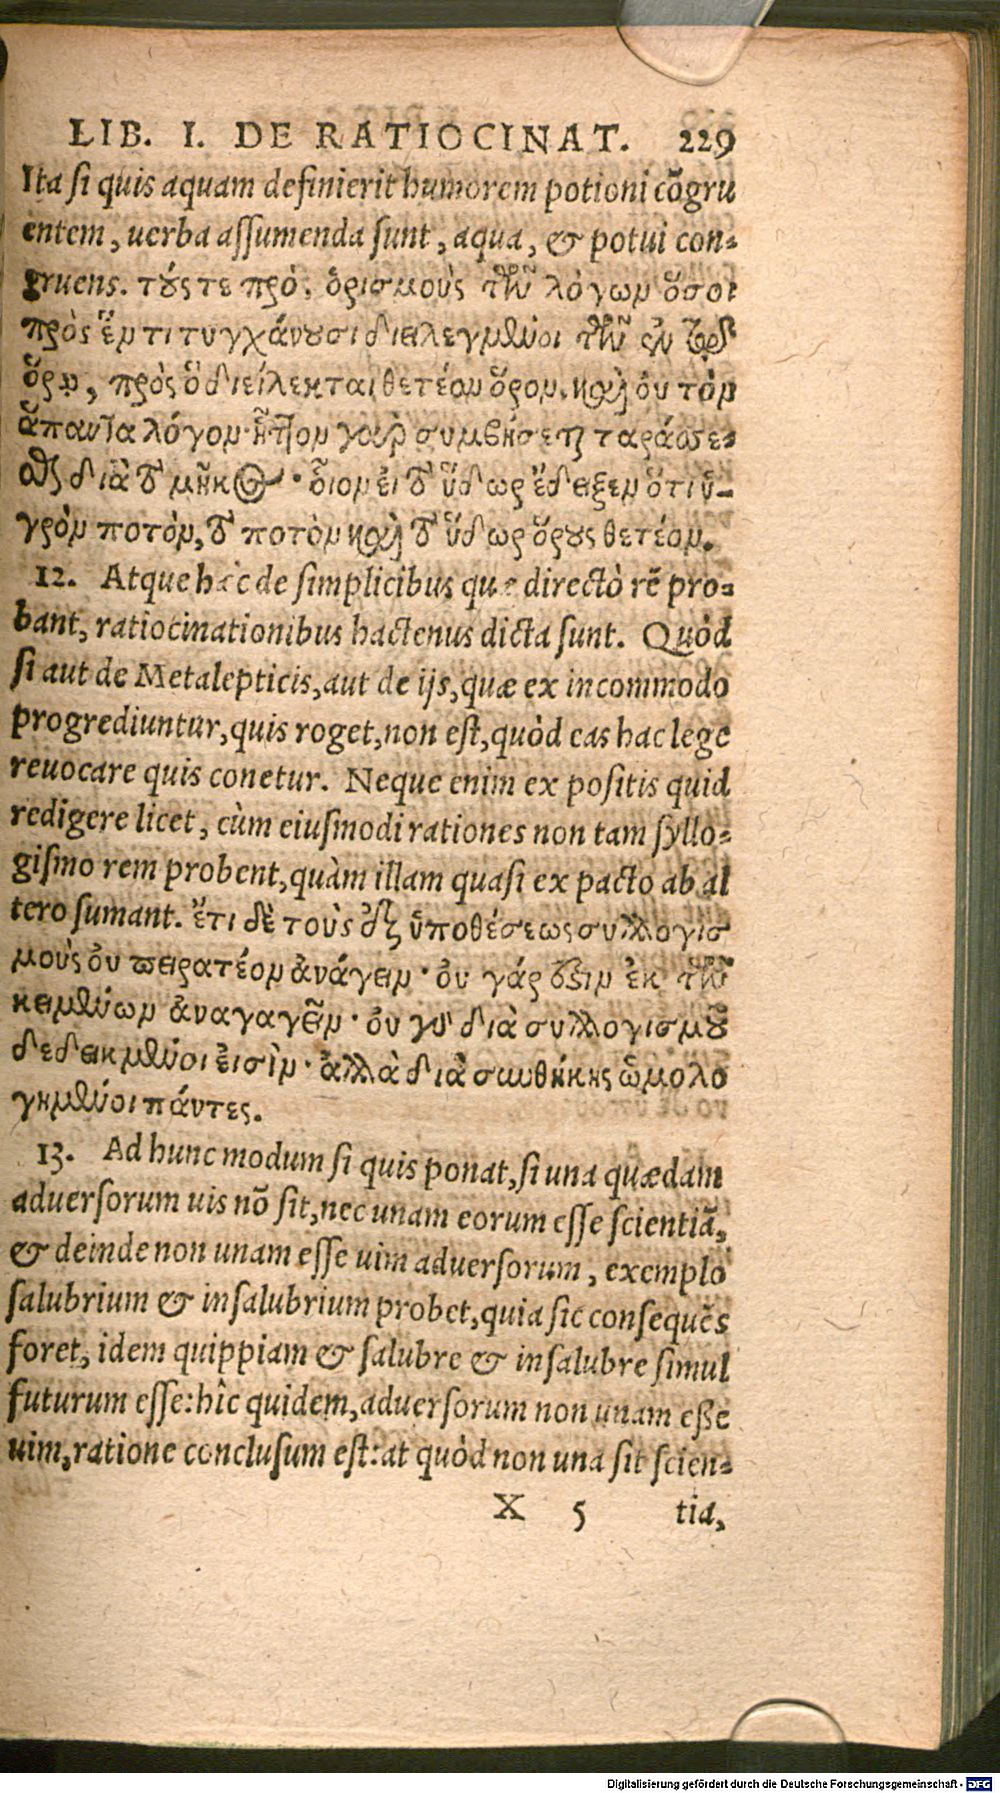 LIB. I. DE RATIOCINAT. 229
Ita si quis aquam definierit humorem potioni cōgru
entem, uerba assumenda sunt, aqua, & potui con-
gruens. τούς τε πρὸς ὁρισμοὺς τῶν λόγων ὅσοι
πρὸς ἕν τι τυγχάνουσι διειλεγμένοι τῶν ἐν τῷ
ὅρῳ, πρὸς ὃ διείλεκται θετέον ὅρον, καὶ οὐ τὸν
ἅπαντα λόγον· ἧττον γὰρ συμβήσεται ταράττε-
σθαι διὰ τὸ μῆκος· οἷον εἰ τὸ ὕδωρ ἔδειξεν ὅτι ὑ-
γρὸν ποτὸν, τὸ ποτὸν καὶ τὸ ὕδωρ ὅρους θετέον.
12. Atque hæc de simplicibus quæ directò rē pro-
bant, ratiocinationibus hactenus dicta sunt. Quòd
si aut de Metalepticis, aut de ijs, quæ ex incommodo
progrediuntur, quis roget, non est, quòd eas hac lege
reuocare quis conetur. Neque enim ex positis quid
redigere licet, cùm eiusmodi rationes non tam syllo-
gismo rem probent, quàm illam quasi ex pacto ab al
tero sumant. ἔτι δὲ τοὺς ἐξ ὑποθέσεως συλλογισ
μοὺς οὐ πειρατέον ἀνάγειν· οὐ γάρ ἐστιν ἐκ τῶν
κειμένων ἀναγαγεῖν· οὐ γὰρ διὰ συλλογισμοῦ
δεδειγμένοι εἰσὶν· ἀλλὰ διὰ συνθήκης ὡμολο
γημένοι πάντες.
13. Ad hunc modum si quis ponat, si una quædam
aduersorum uis nō sit, nec unam eorum esse scientiā,
& deinde non unam esse uim aduersorum, exemplo
salubrium & insalubrium probet, quia sic consequēs
foret, idem quippiam & salubre & insalubre simul
futurum esse: hîc quidem, aduersorum non unam esse
uim, ratione conclusum est: at quòd non una sit scien-
X 5 tia,
Digitalisierung gefördert durch die Deutsche Forschungsgemeinschaft - DFG